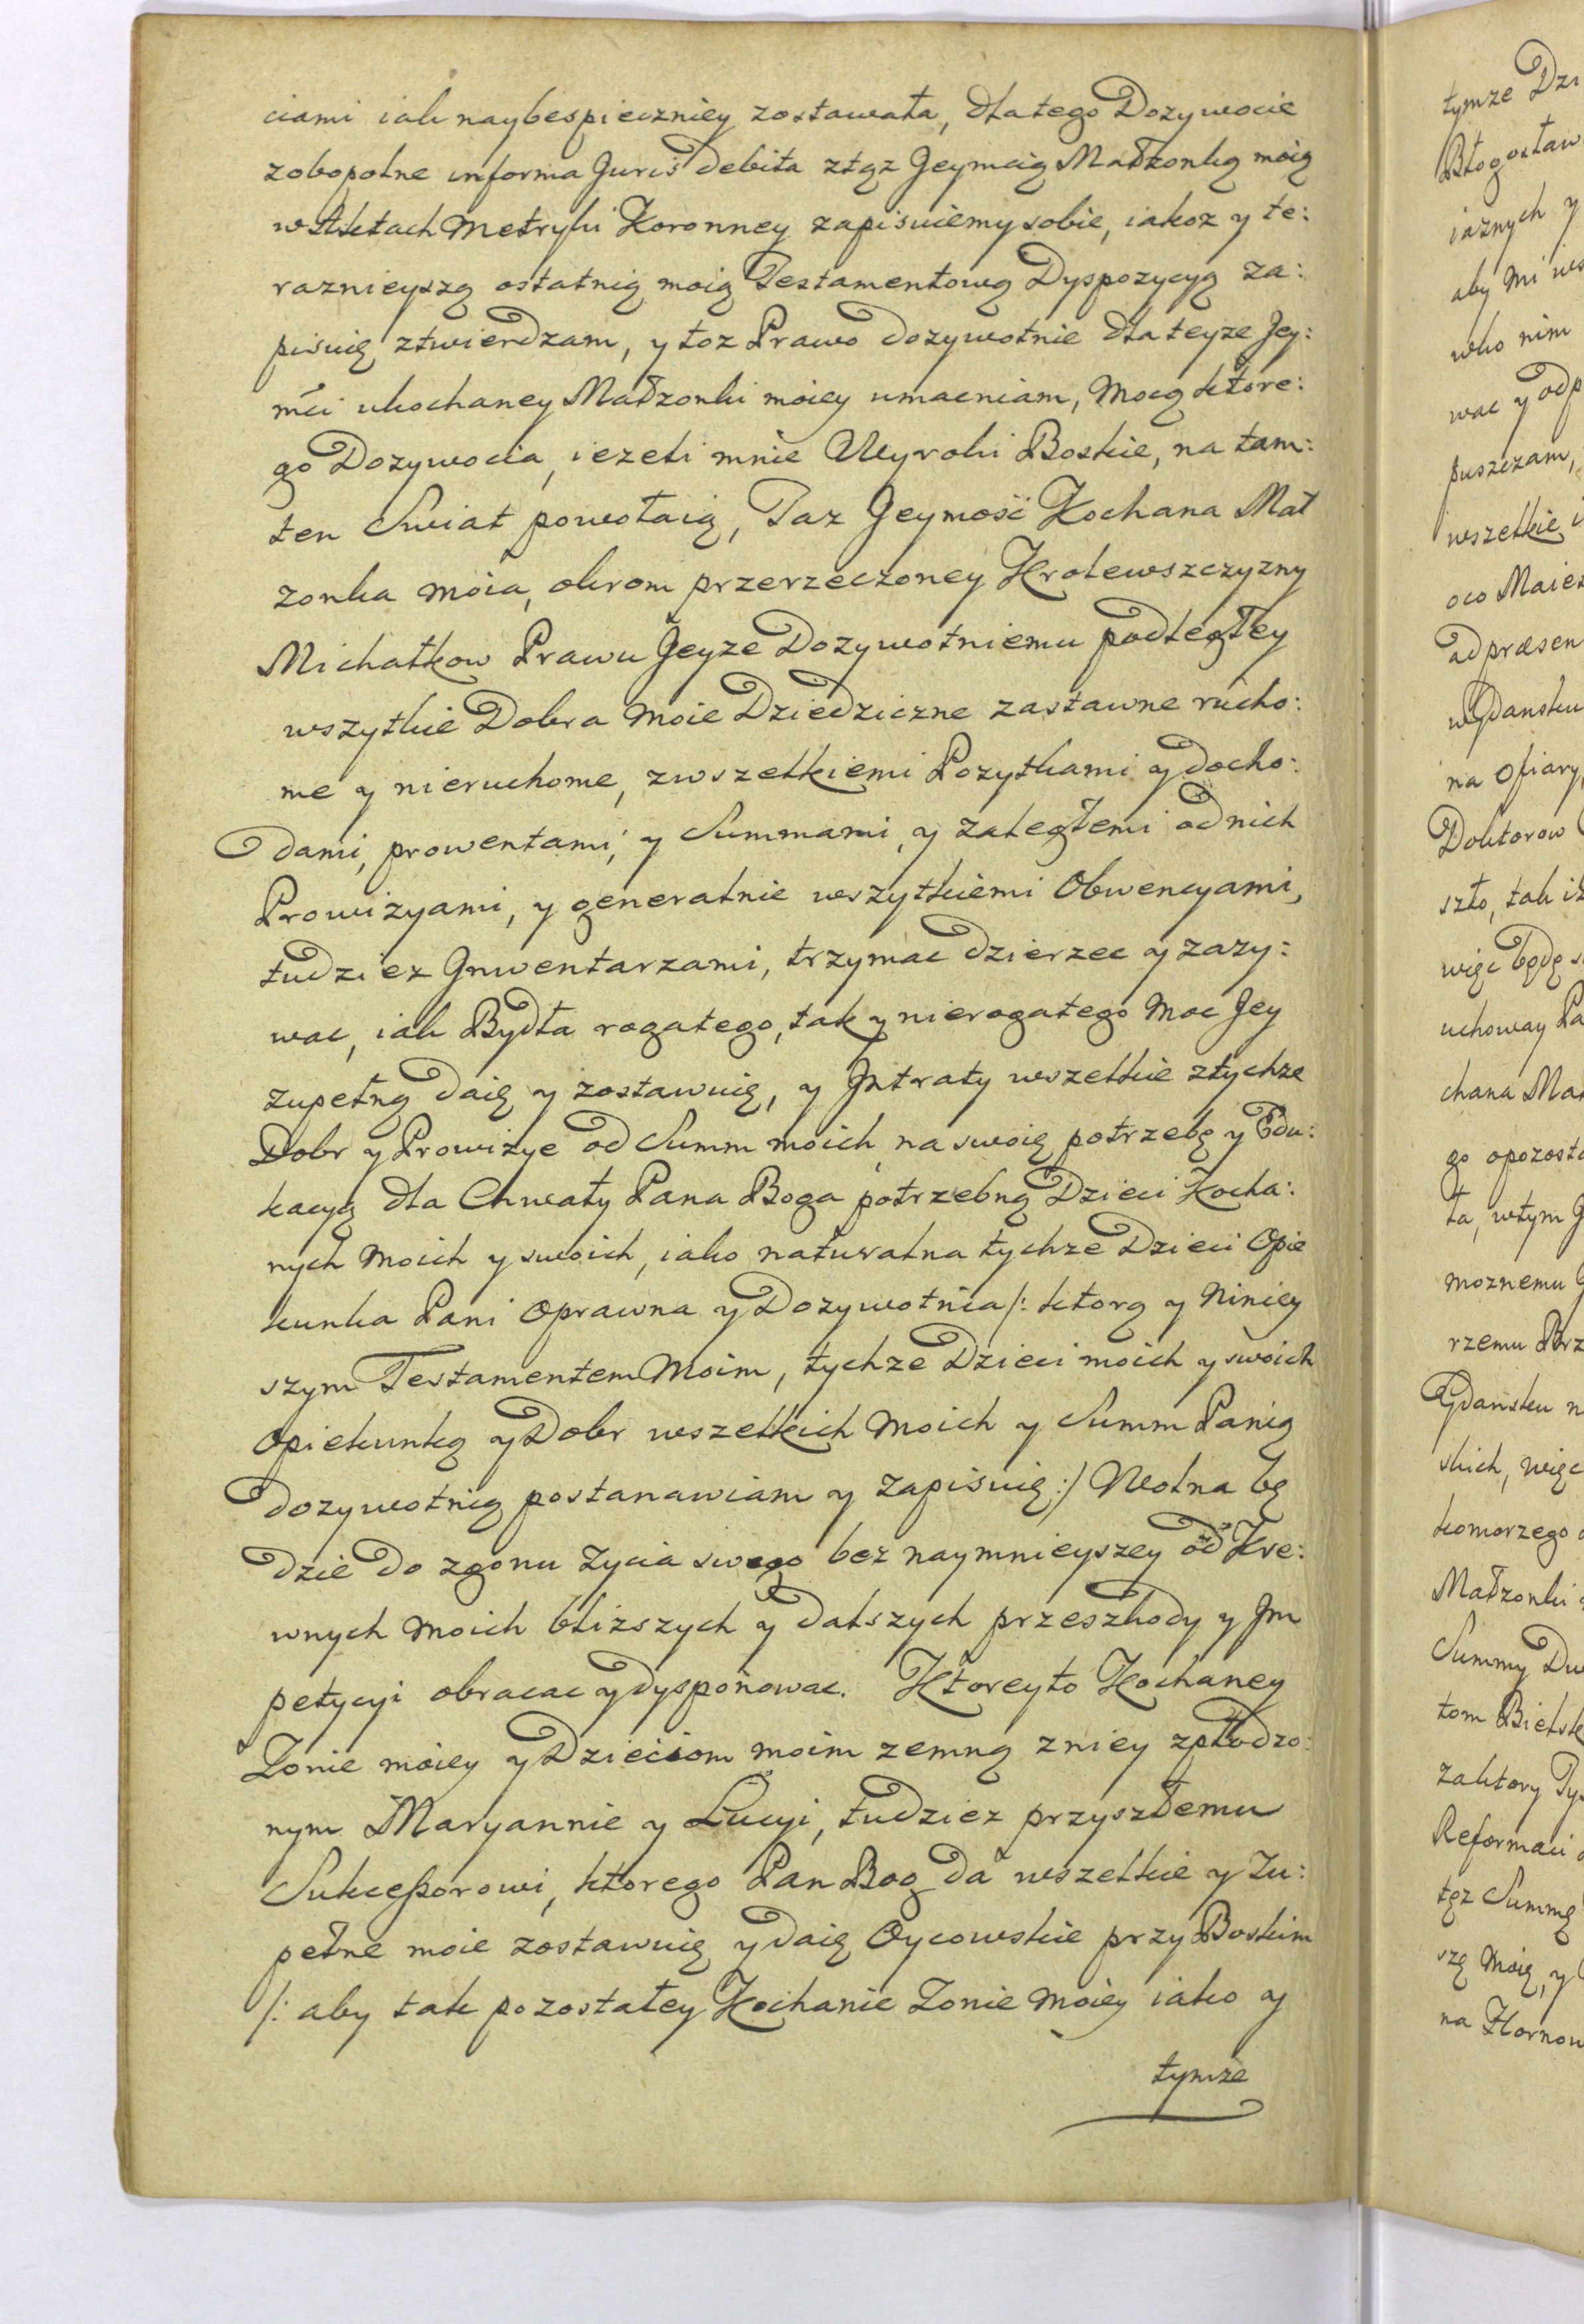 ciami iak naybespieczniey zostawała, dlatego Dozywocie
zobopolne informa Juris debita ztąz Jeymcią Małzonką moią
w Aktach Metryki Koronney zapisuiemy sobie, iakoz y te:
raznieyszą ostatnią moią Testamentową Dyspozycyą za:
pisuię ztwierdzam, y toz Prawo dozywotnie dla teyze Jey:
mći ukochaney Małzonki moiey umacniam, Mocą które:
go Dozywocia, iezeli mnie Wyroki Boskie, na tam:
ten Swiat powołaią, Taz Jeymość Kochana Mał
zonka moia, okrom przerzeczoney Krolewszczyzny
Michałkow Prawu Jeyze Dozywotniemu podległey
wszytkie Dobra moie Dziedziczne zastawne rucho:
me y nieruchome, zwszelkiemi Pozytkami y docho:
dami, prowentami, y Summami, y zaległemi od nich
Prowizyami, y generalnie wszytkiemi Obwencyami,
tudziez Jnwentarzami, trzymac dzierzec y zazy:
wac, iak Bydła rogatego, tak y nierogatego Moc Jey
zupełną daię y zostawuię, y Jntraty wszelkie ztychze
Dobr y Prowizye od Summ moich, na swoię potrzebę y Edu:
kacyą dla Chwały Pana Boga potrzebną Dzieci Kocha:
nych Moich y swoich, iako naturalna tychze Dzieci Opie
kunka Pani Oprawna y Dozywotnia /: ktorą y Niniey
szym Testamentem Moim, tychze Dzieci moich y swoich
Opiekunką y Dobr wszelkich Moich y Summ Panią
dozywotnią postanawiam y zapisuię :/ Wolna bę
dzie do zgonu zycia swego bez naymnieyszey od Kre:
wnych Moich blizszych y dalszych przeszkody y Jm
petycyi obracac y dysponowac. Ktoreyto Kochaney
Zonie moiey y Dzieciom moim zemną zniey zpłodzo:
nym Maryannie y Lucyi, tudziez przyszłemu
Sukceßorowi, ktorego Pan Bog da wszelkie y Zu:
pełne moie zostawuię y daię Oycowskie przy Boskim
/: aby tak pozostałey Kochanie Zonie Moiey iako y
tymze
tymze Dzi
Błogosław
iaznych y
aby Mi ws
wko nim
wac y odp
puszczam,
wszelkie i
oco Maies
ad præsen
wGdansku
na Ofiary,
Doktorow
szło, tak iz
więc będę s
uchoway Pa
chana Mał
go opozosta
ła, wtym J
moznemu J
rzemu Prz
Gdansku n
skich, więc
komorzego
Małzonki
Summy Dw
tom Bielsk
zaktory Ty
Reformaci
tęz Summę
szę Moię, y
na Hornow